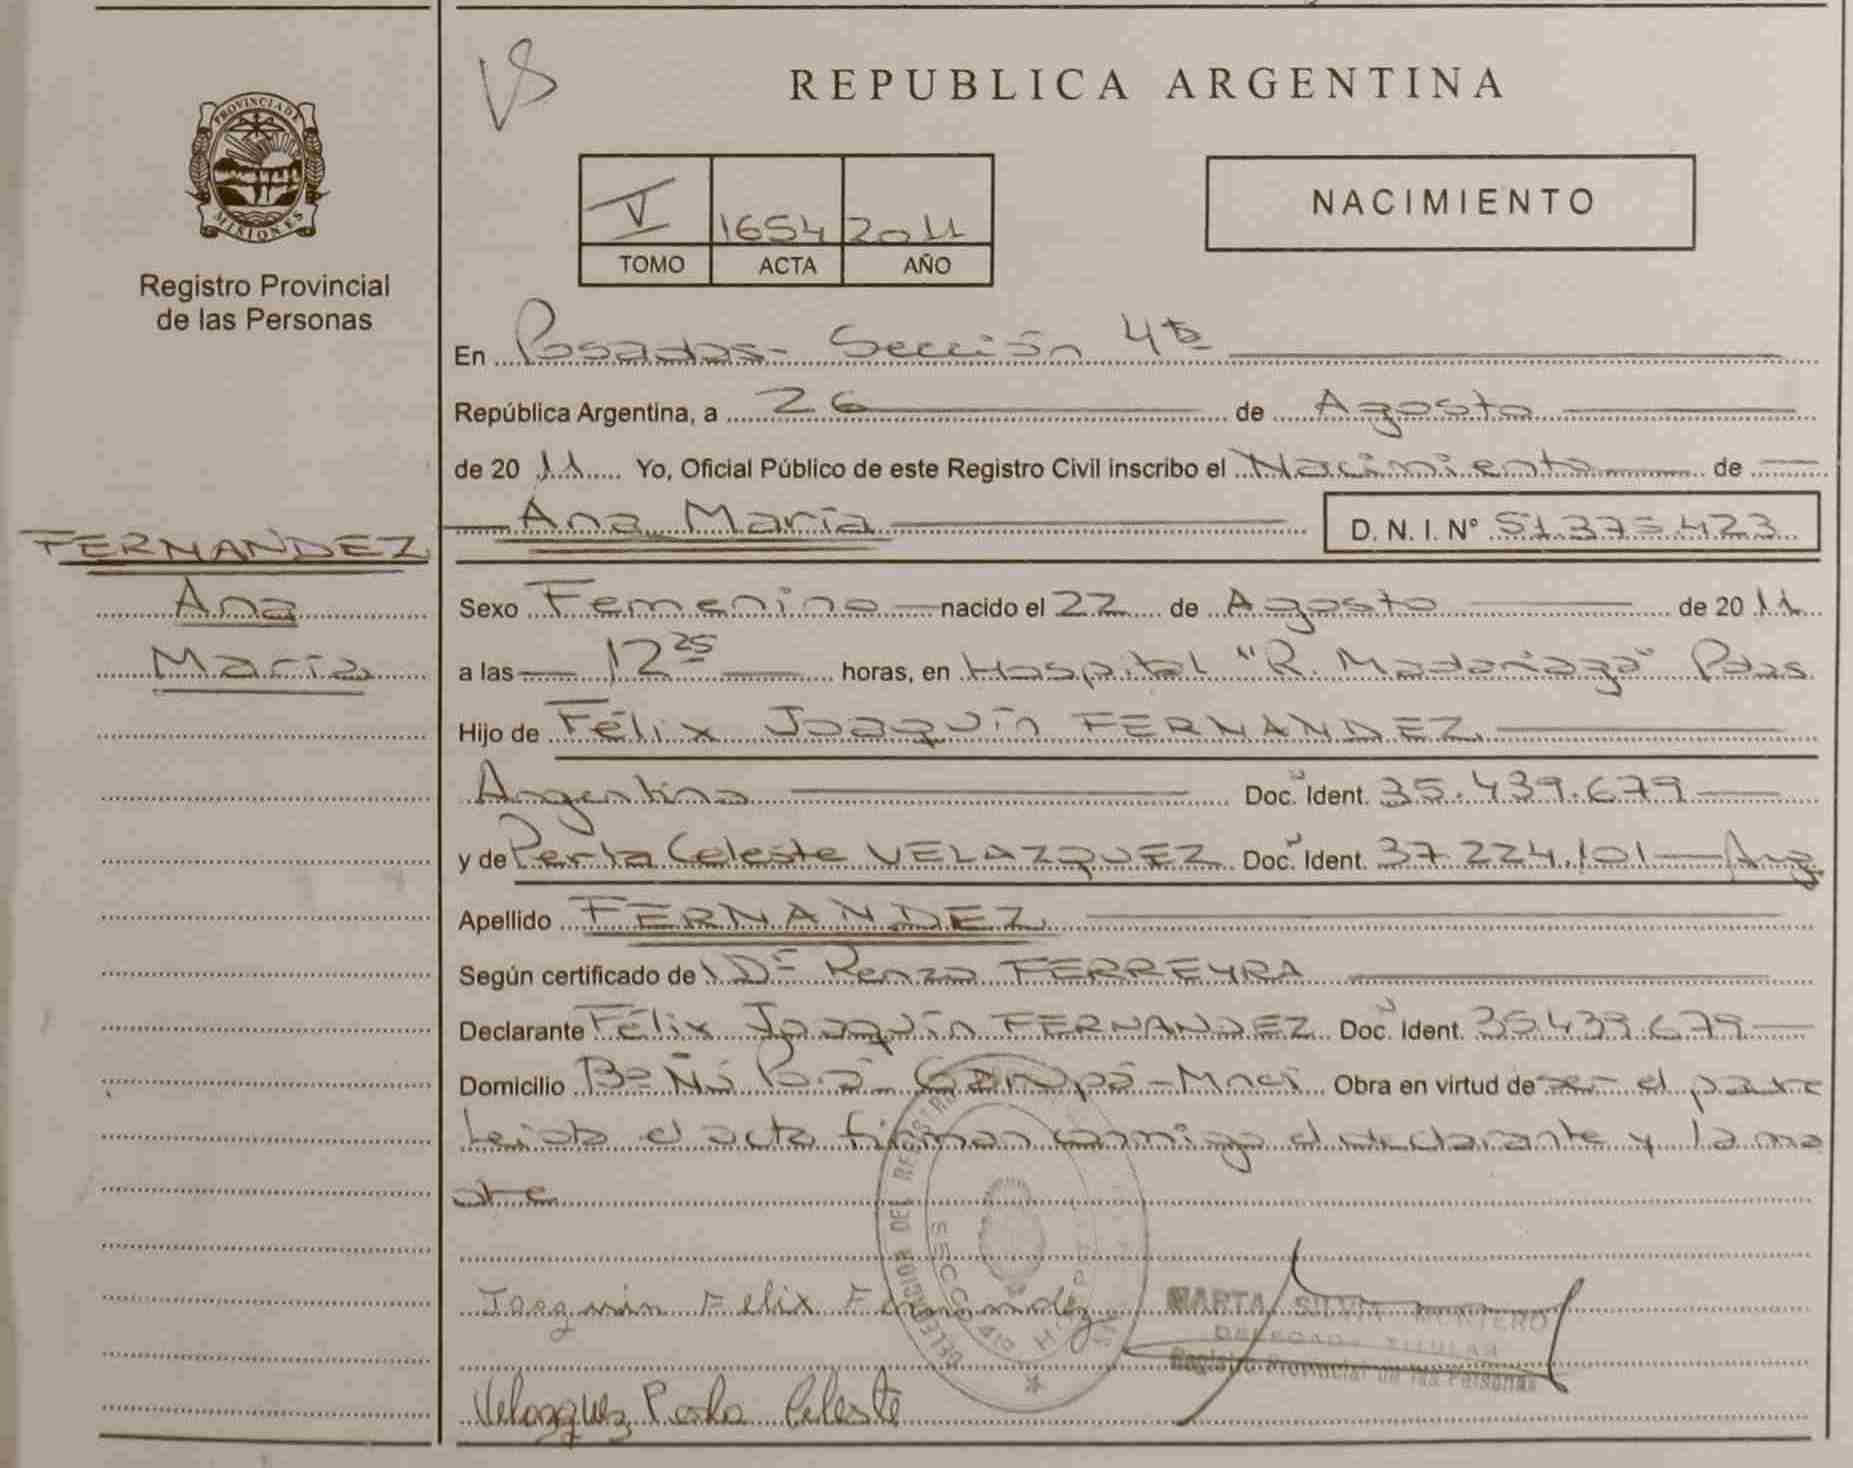 VS
REPUBLICA ARGENTINA
PROVINCIA DE
MISIONES
Registro Provincial
de las Personas
V 1654 2011
TOMO ACTA AÑO
NACIMIENTO
En Posadas- Sección 4ta
República Argentina, a 26 de Agosto
de 20 11 Yo, Oficial Público de este Registro Civil inscribo el Nacimiento de
Ana María D. N. I. N° 51.375.423
FERNANDEZ
Ana
María
Sexo Femenino nacido el 22 de Agosto de 20 11
a las 12 25 horas, en Hospital "R. Madariaga" Pdas
Hijo de Félix Joaquín FERNANDEZ
Argentino Doc. Ident. 35.439.679
y de Perla Celeste VELAZQUEZ Doc. Ident. 37.224.101 - Arg
Apellido FERNANDEZ
Según certificado de Renzo FERREYRA
Declarante Félix Joaquín FERNANDEZ Doc. Ident. 35.439.679
Domicilio Bº Garupá - Mnes Obra en virtud de ser el padre
Leída el acta firman conmigo el declarante y la ma
dre
DELEGACION DEL REGISTRO
SECC
Joaquin Felix Fernandez
MARTA SILVIA MONTERO
DELEGADA TITULAR
Registro Provincial de las Personas
Velazquez Perla Celeste